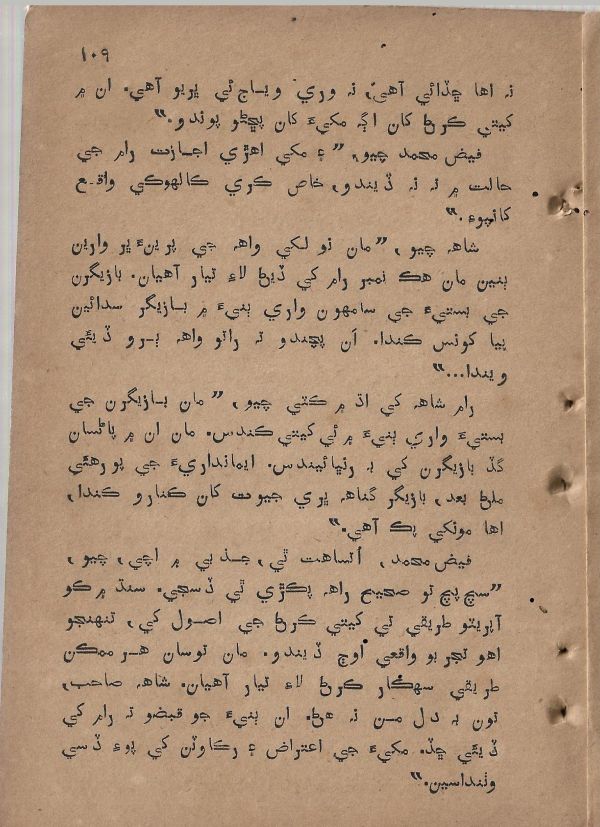 ١٠٩
نه اها ڇڏائي آهي، نه وري وياج ئي ڀريو آهي. ان ۾
کيتي ڪرڻ کان اڳ مکيءَ کان پڇڻو پوندو."
فيض محمد چيو، "۽ مکي اهڙي اجازت رام جي
حالت ۾ نه نه ڏيندو، خاص ڪري ڪالهوڪي واقع
کانپوءِ."
شاهه چيو، "مان نو لکي واهه جي پرينءَ ڀر وارين
ٻنين مان هڪ نمبر رام کي ڏيڻ لاءِ تيار آهيان. بازيگرن
جي بستيءَ جي سامهون واري ٻنيءَ ۾ بازيگر سدائين
پيا کونس ڪندا. اَن پچندو ته راتو واهه ٻرو ڏيئي
ويندا..."
رام شاهه کي اڌ ۾ ڪٽي چيو، "مان بازيگرن جي
بستيءَ واري ٻنيءَ ۾ ئي کيتي ڪندس. مان ان ۾ پاڻسان
گڏ بازيگرن کي به رنڀائيندس. ايمانداريءَ جي پورهئي
ملڻ بعد، بازيگر گناهه ڀري جيوت کان ڪنارو ڪندا،
اها مونکي پڪ آهي."
فيض محمد، اُتساهت ٿي، جذبي ۾ اچي، چيو،
"سچ پچ تو صحيح راهه پڪڙي ٿي ڏسجي. سنڌ ۾ ڪو
آپريٽو طريقي تي کيتي ڪرڻ جي اصول کي، تنهنجو
اهو تجربو واقعي اوچ ڏيندو. مان توسان هر ممڪن
طريقي سهڪار ڪرڻ لاءِ تيار آهيان. شاهه صاحب،
تون به دل من نه هڻ. ان ٻنيءَ جو قبضو ته رام کي
ڏيئي ڇڏ. مکيءَ جي اعتراض ۽ رڪاوٽن کي پوءِ ڏسي
وٺنداسين."